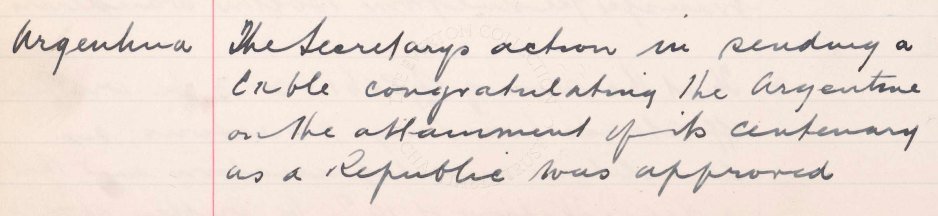 Argentina The Secretarys action in sending a
Cable congratulating the Argentine
on the attainment of its centenary
as a Republic was approved